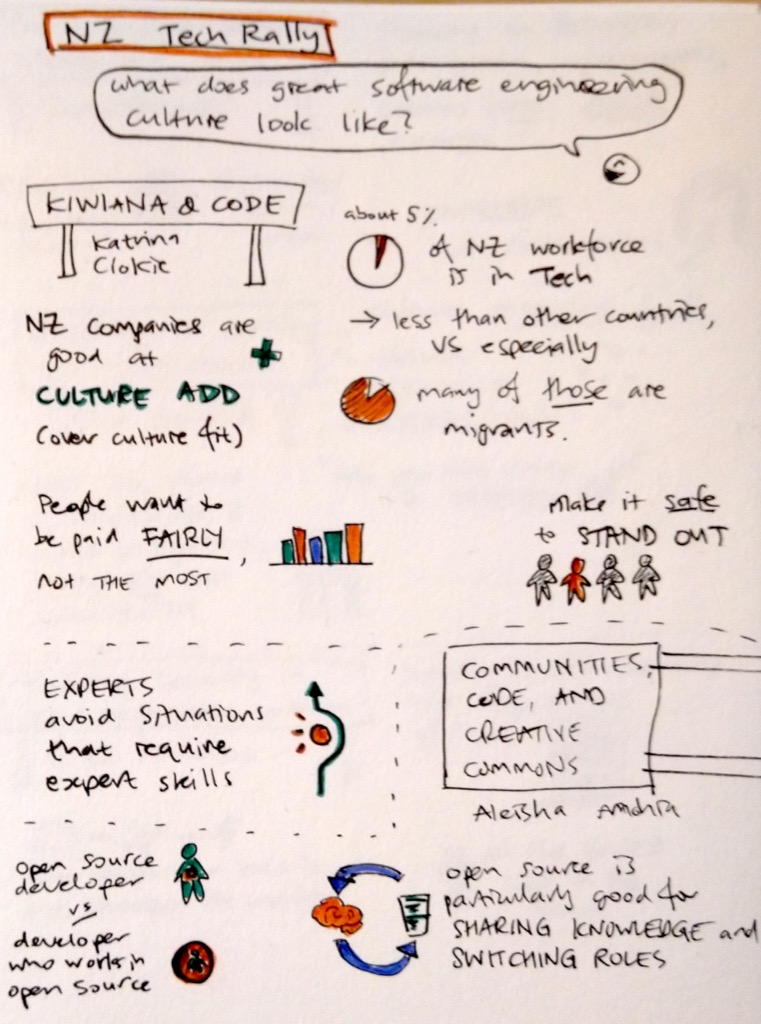 NZ Tech Rally
what does great software engineering
culture look like?
KIWIANA & CODE
Katrina
Clokie
about 5%
of NZ workforce
is in Tech
→ less than other countries,
VS especially
many of those are
migrants.
NZ companies are
good at
CULTURE ADD
(over culture fit)
People want to
be paid FAIRLY,
not THE MOST
Make it safe
to STAND OUT
EXPERTS
avoid situations
that require
expert skills
COMMUNITIES,
CODE, AND
CREATIVE
COMMONS
Aleisha Amohia
open source
developer
vs
developer
who works in
open source
open source is
particularly good for
SHARING KNOWLEDGE and
SWITCHING ROLES